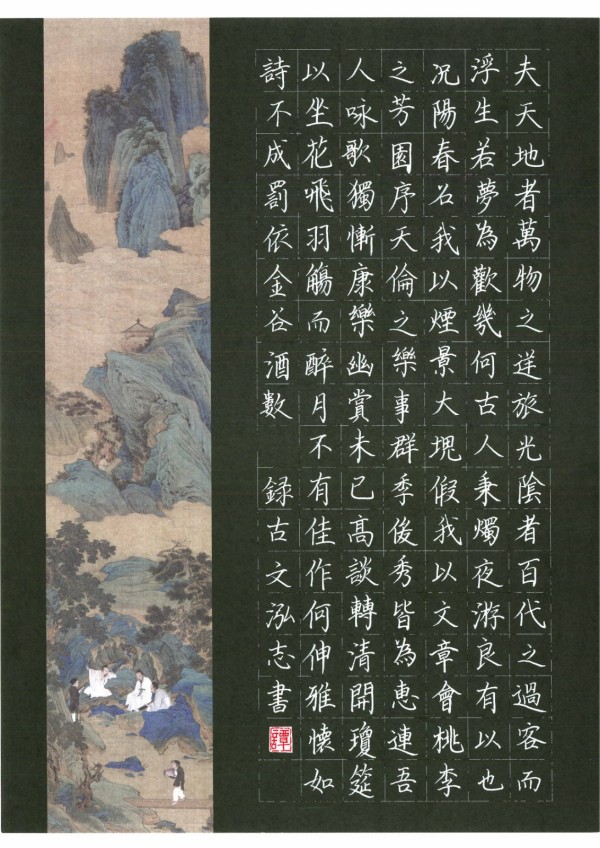 夫天地者萬物之逆旅光陰者百代之過客而
浮生若夢為歡幾何古人秉燭夜游良有以也
况陽春召我以煙景大塊假我以文章會桃李
之芳園序天倫之樂事群季俊秀皆為惠連吾
人咏歌獨慚康樂幽賞未已高談轉清開瓊筵
以坐花飛羽觴而醉月不有佳作何伸雅懷如
詩不成罰依金谷酒數 録古文泓志書
譚